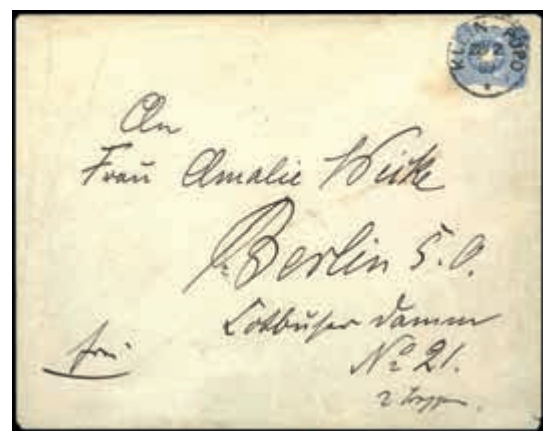 KLEIN-POPO
An
Frau Amalie Wicke
Berlin S.O.
Cottbuser Damm
No 21.
2 Treppen.
frei